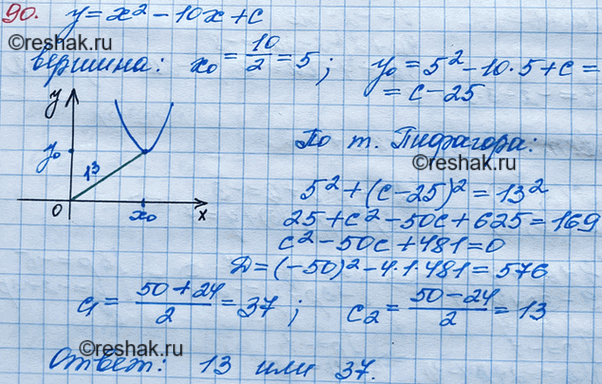 90. y = x² - 10x + c
©reshak.ru
вершина: x₀ = 10/2 = 5; y₀ = 5² - 10·5 + c =
= c - 25
y
По т. Пифагора:
©reshak.ru
y₀
13
5² + (c - 25)² = 13²
0 x₀ x
25 + c² - 50c + 625 = 169
c² - 50c + 481 = 0
D = (-50)² - 4·1·481 = 576
c₁ = (50 + 24)/2 = 37; c₂ = (50 - 24)/2 = 13
©reshak.ru
©reshak.ru
Ответ: 13 или 37.